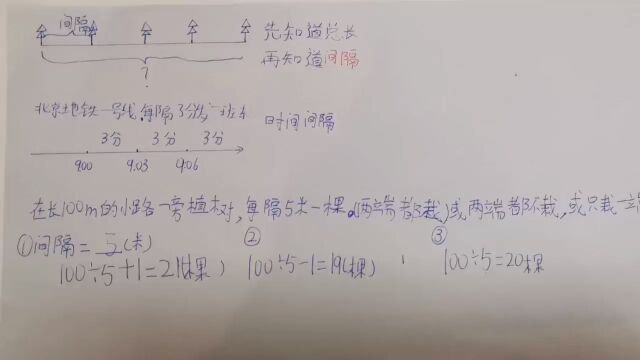 间隔
先知道总长
再知道间隔
?
北京地铁一号线,每隔3分发一班车
时间间隔
3分 3分 3分
9:00 9:03 9:06
在长100m的小路一旁植树,每隔5米一棵。(两端都栽)或两端都不栽,或只栽一端
①间隔=5(米) ② ③
100÷5+1=21(棵) 100÷5-1=19(棵) 100÷5=20棵